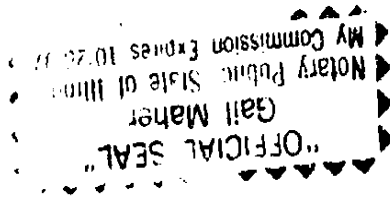 "OFFICIAL SEAL"
Gail Maher
Notary Public State of
My Commission Expires